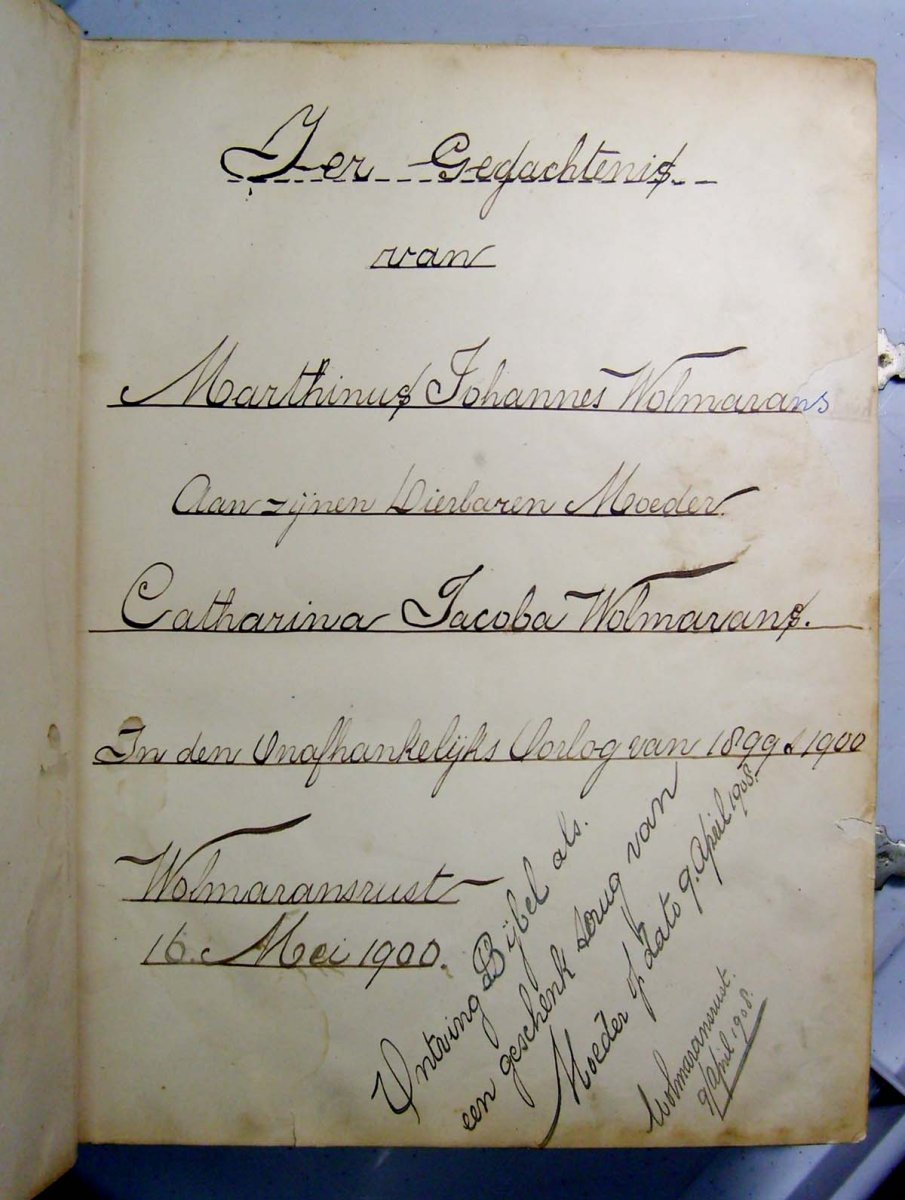 Ter Gedachtenis
van
Marthinus Johannes Wolmarans
Aan zijnen Dierbaren Moeder
Catharina Jacoba Wolmarans.
In den Onafhankelijks Oorlog van 1899 & 1900
Wolmaransrust
16. Mei 1900.
Ontving Bijbel als.
een geschenk terug van
Moeder op dato 9. April 1908.
Wolmaransrust.
9/April 1908.